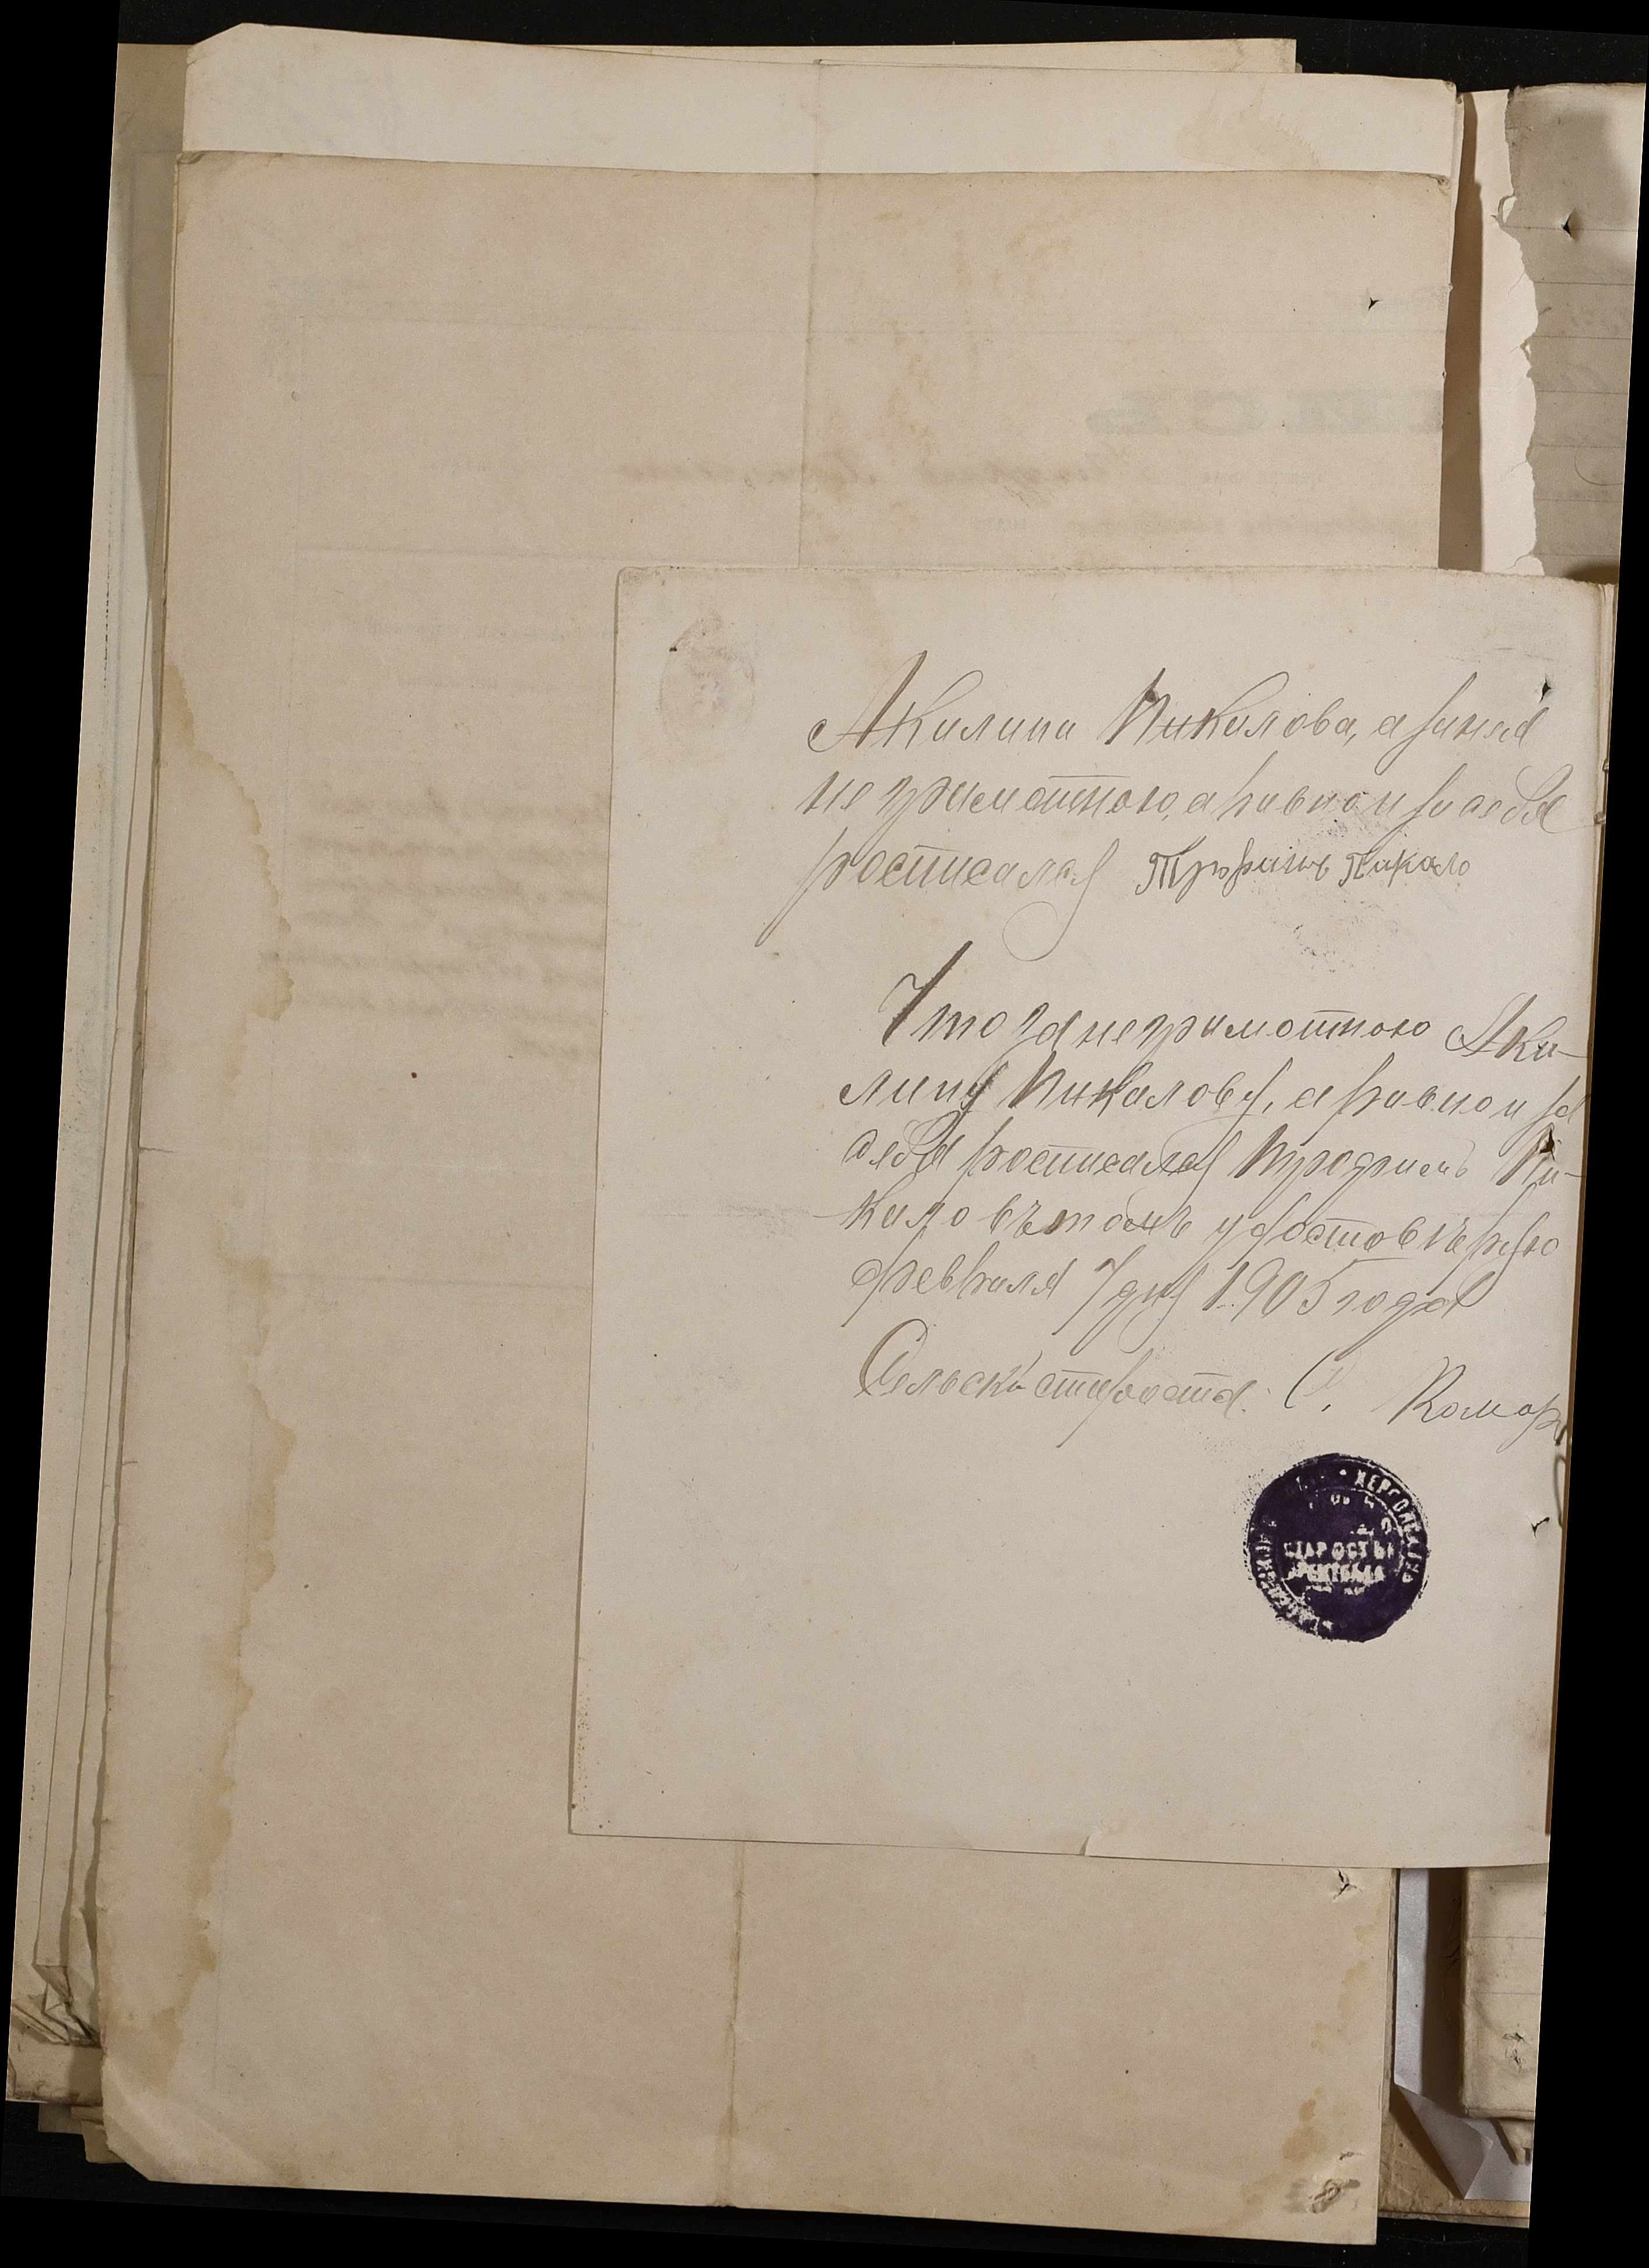 Акилина Пикалова, а за нея
не грамотною, а равно и за себя
росписался Трофимъ Пикало
Что за не грамотною Аки-
лину Пикалову, а равно и за
себя росписался Трофимъ Пи-
кало въ томъ удостовѣряю
февраля 7 дня 1905 года
Сельскій староста: С. Комар
ХЕРСОНСКАГО
СТАРОСТЫ